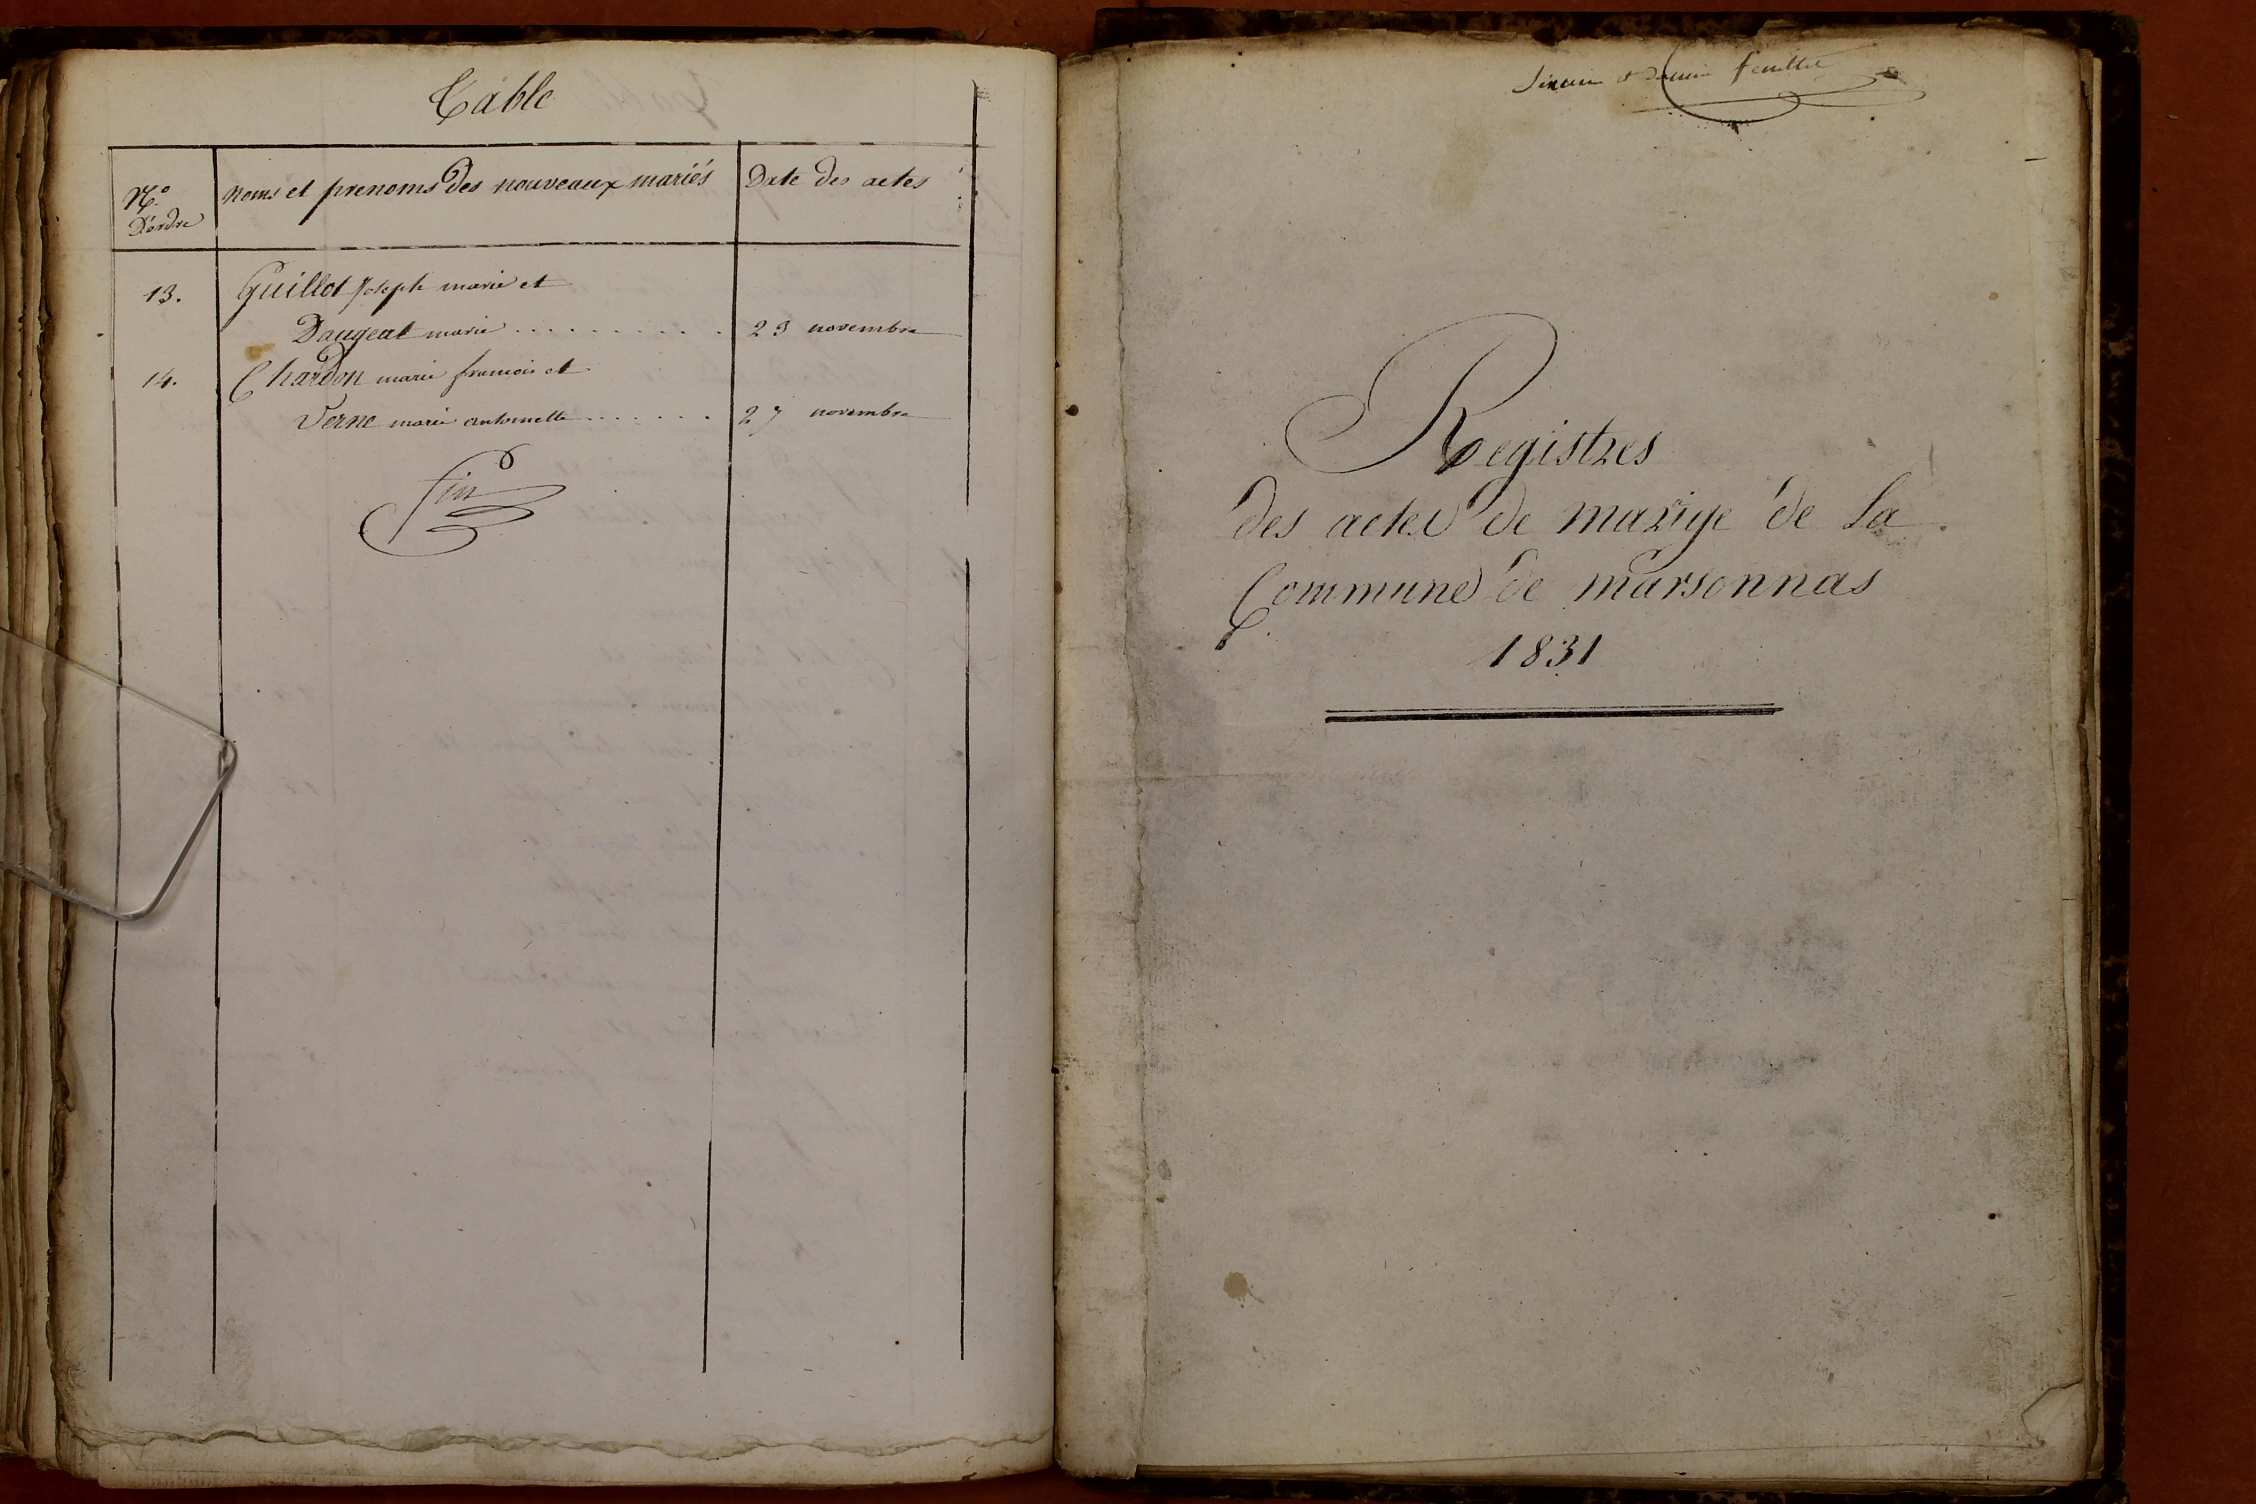 Table
N.o D'ordre
Noms et prenoms des nouveaux mariés
Date des actes
13.
Guillot Joseph marie et
Daugeat marie . . . . . . . . . .
23 novembre
14.
Chardon marie francois et
Verne marie antoinette . . . . . . .
27 novembre
fin
feuillet
Registres
des actes de marige de la
Commune de marsonnas
1831